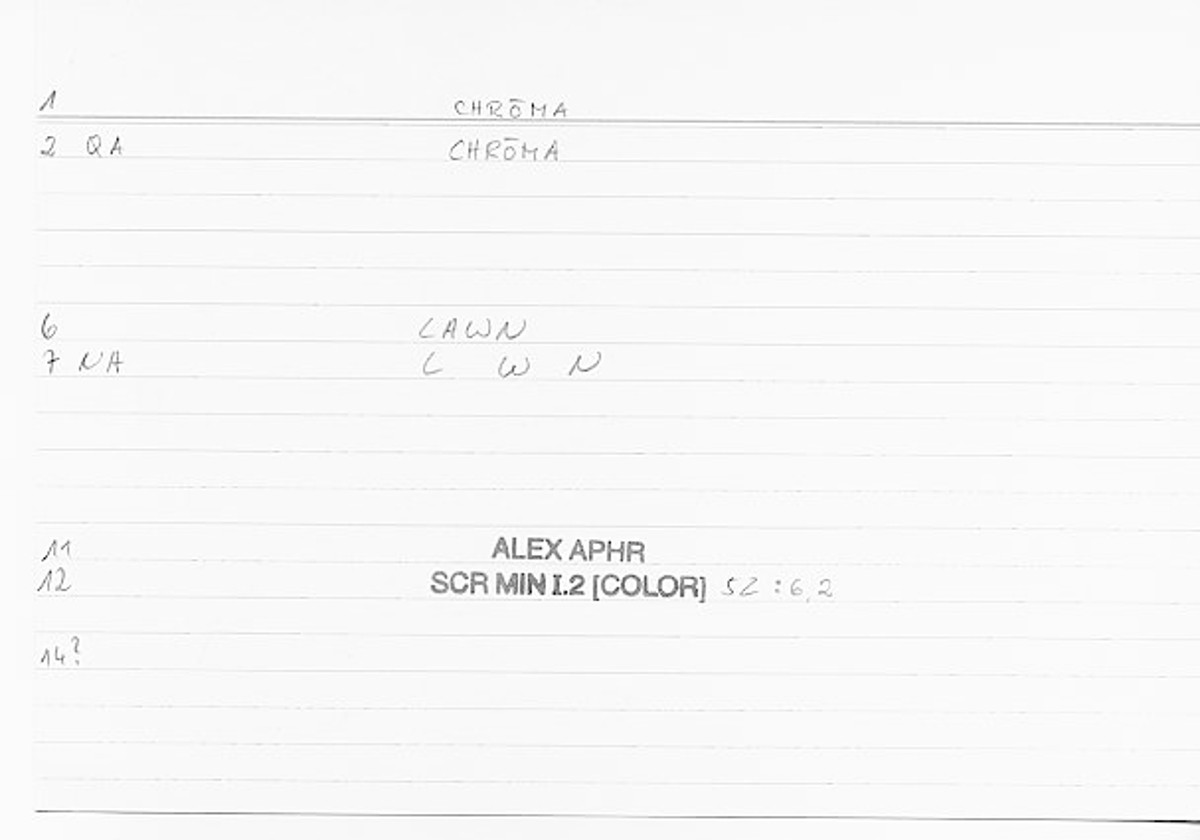 1 CHRŌMA
2 QA CHRŌMA
6 LAWN
7 NA L W N
11 ALEX APHR
12 SCR MIN I.2 [COLOR] SZ : 6,2
14?